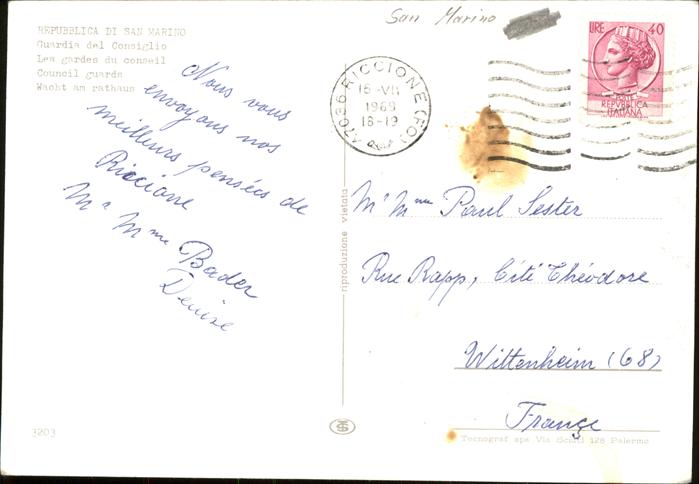 San Marino
REPUBBLICA DI SAN MARINO
Guardia del Consiglio
Les gardes du conseil
Council guards
Wacht am rathaus
Nous vous
envoyons nos
meilleurs pensées de
Riccione
Mr Mme Bader
Denise
47036 RICCIONE (FO)
15-VII
1969
18-19
LIRE 40
POSTE
REPVBBLICA
ITALIANA
riproduzione vietata
Mr Mme Paul Sester
Rue Rapp, Cité Théodore
Wittenheim (68)
France
3203
Tecnograf spa Via 128 Palermo